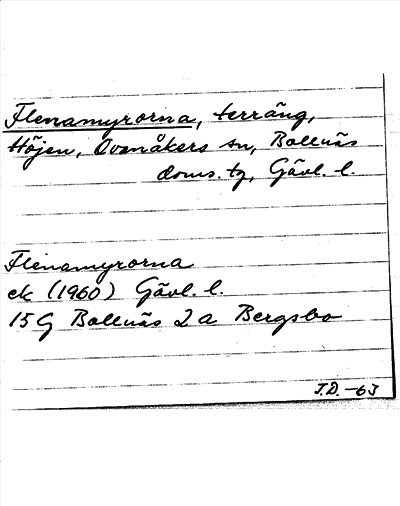 Flenamyrorna, terräng,
Höjen, Ovanåkers sn, Bollnäs
doms. tg, Gävl. l.
Flenamyrorna
ek (1960) Gävl. l.
15 G Bollnäs 2 a Bergsbo
J.D. -63